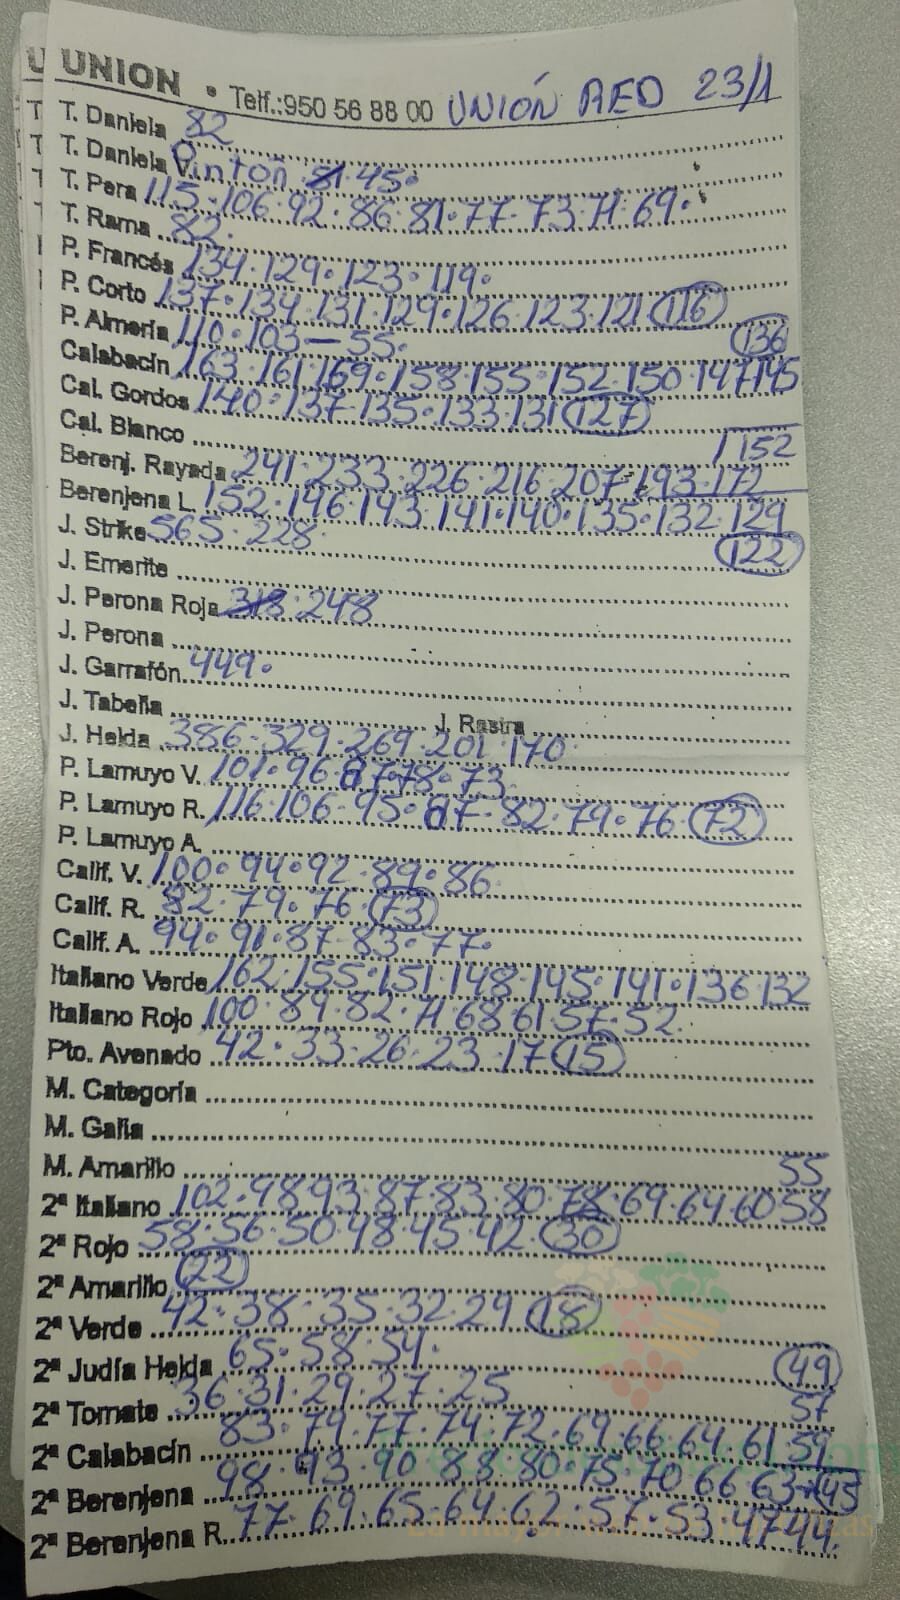 UNION • Telf.:950 56 88 00 UNIÓN RED 23/1
T. Daniela 82
T. Daniela V. Pintón 81 45.
T. Pera 115.106.92.86.81.77.73.71.69.
T. Rama 82.
P. Francés 134.129.123.119.
P. Corto 137.134.131.129.126.123.121 116
P. Almería 110.103—55. 136
Calabacín 163.161.159.158.155.152.150.147.145
Cal. Gordos 140.137.135.133.131 127
Cal. Blanco 152
Berenj. Rayada 241.233.226.216.207.193.172
Berenjena L. 152.146.143.141.140.135.132.129
J. Strike 565.228. 122
J. Emerite
J. Perona Roja 318.248
J. Perona
J. Garrafón 449.
J. Tabeña J. Rastra
J. Helda 386.329.269.201.170.
P. Lamuyo V. 101.96.87.78.73.
P. Lamuyo R. 116.106.95.87.82.79.76 72
P. Lamuyo A.
Calif. V. 100.94.92.89.86.
Calif. R. 82.79.76.73
Calif. A. 94.91.87.83.77.
Italiano Verde 162.155.151.148.145.141.136.132
Italiano Rojo 100.89.82.71.68.61.57.52.
Pto. Avenado 42.33.26.23.17 15
M. Categoría
M. Galia
M. Amarillo 55
2ª Italiano 102.98.93.87.83.80.78.69.64.60.58
2ª Rojo 58.56.50.48.45.42.30
2ª Amarillo 22
2ª Verde 42.38.35.32.29 18
2ª Judía Helda 65.58.54. 49
2ª Tomate 36.31.29.27.25 57
2ª Calabacín 83.79.77.74.72.69.66.64.61.59
2ª Berenjena 98.93.90.88.80.75.70.66.63 45
2ª Berenjena R. 77.69.65.64.62.57.53.47.44.